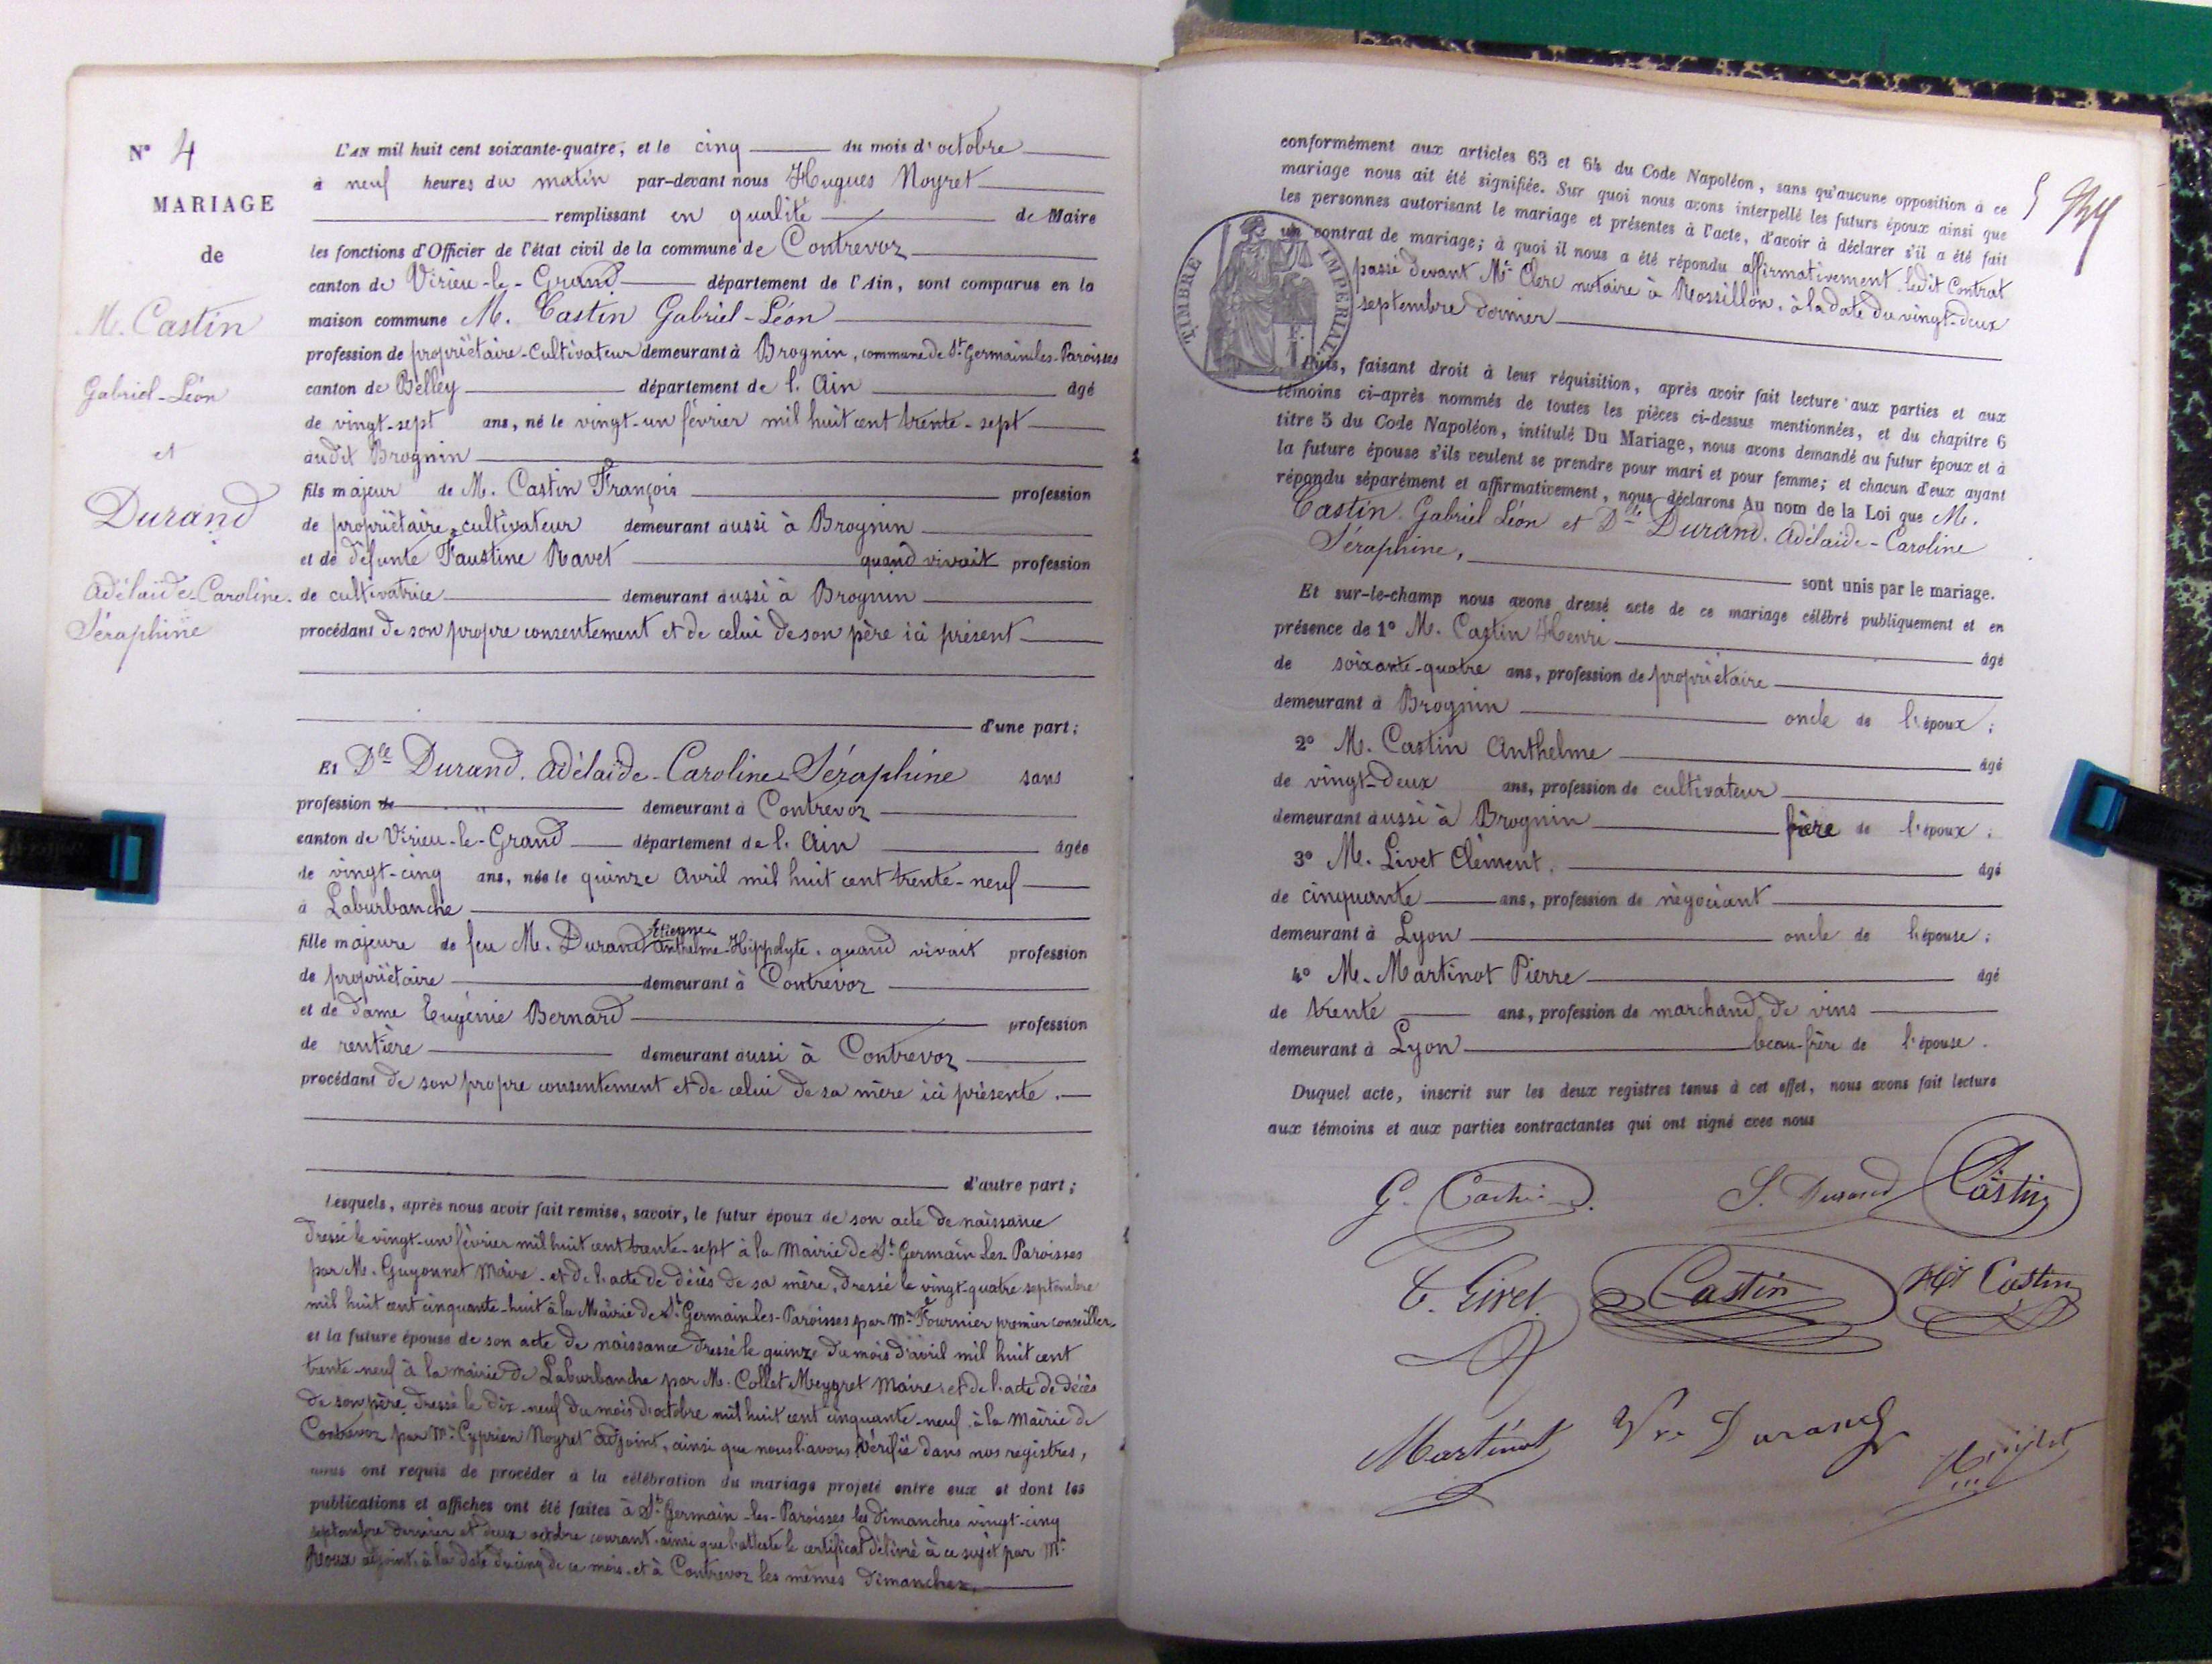 N° 4
MARIAGE
de
M. Castin
Gabriel-Léon
et
Durand
Adélaïde-Caroline.
Séraphine
L'AN mil huit cent soixante-quatre, et le cinq du mois d'octobre
à neuf heures du matin par-devant nous Hugues Noyret
remplissant en qualité de Maire
les fonctions d'Officier de l'état civil de la commune de Contrevoz
canton de Virieu-le-Grand département de l'Ain, sont comparus en la
maison commune M. Castin Gabriel-Léon
profession de propriétaire-cultivateur demeurant à Brognin, commune de St Germain-les-Paroisses
canton de Belley département de l'Ain âgé
de vingt-sept ans, né le vingt-un février mil huit cent trente-sept
audit Brognin
fils majeur de M. Castin François profession
de propriétaire-cultivateur demeurant aussi à Brognin
et de défunte Faustine Ravet quand vivait profession
de cultivatrice demeurant aussi à Brognin
procédant de son propre consentement et de celui de son père ici présent
d'une part;
Et Dlle Durand. Adélaïde-Caroline-Séraphine sans
profession de demeurant à Contrevoz
canton de Virieu-le-Grand département de l'Ain âgée
de vingt-cinq ans, née le quinze Avril mil huit cent trente-neuf
à Laburbanche
Etienne
fille majeure de feu M. Durand Anthelme-Hippolyte. quand vivait profession
de propriétaire demeurant à Contrevoz
et de dame Eugénie Bernard profession
de rentière demeurant aussi à Contrevoz
procédant de son propre consentement et de celui de sa mère ici présente.
d'autre part;
Lesquels, après nous avoir fait remise, savoir, le futur époux de son acte de naissance
dressé le vingt-un février mil huit cent trente-sept à la Mairie de St Germain les Paroisses
par M. Guyonnet Maire. et de l'acte de décès de sa mère, dressé le vingt-quatre septembre
mil huit cent cinquante-huit à la Mairie de St Germain les-Paroisses par Mr Fournier premier conseiller
et la future épouse de son acte de naissance dressé le quinze du mois d'avril mil huit cent
trente-neuf à la mairie de Laburbanche par M. Collet Meygret Maire. et de l'acte de décès
de son père, dressé le dix-neuf du mois d'octobre mil huit cent cinquante-neuf à la Mairie de
Contrevoz par Mr Cyprien Noyret adjoint, ainsi que nous l'avons vérifié dans nos registres,
nous ont requis de procéder à la célébration du mariage projeté entre eux et dont les
publications et affiches ont été faites à St Germain-les-Paroisses les dimanches vingt-cinq
septembre dernier et deux octobre courant. ainsi que l'atteste le certificat délivré à ce sujet par Mr
Roux adjoint. à la date du cinq de ce mois. et à Contrevoz les mêmes dimanches.
conformément aux articles 63 et 64 du Code Napoléon, sans qu'aucune opposition à ce
mariage nous ait été signifiée. Sur quoi nous avons interpellé les futurs époux ainsi que
les personnes autorisant le mariage et présentes à l'acte, d'avoir à déclarer s'il a été fait
un contrat de mariage; à quoi il nous a été répondu affirmativement. ledit Contrat
passé devant Me Clerc notaire à Rossillon, à la date du vingt-deux
septembre dernier
TIMBRE IMPERIAL
Puis, faisant droit à leur réquisition, après avoir fait lecture aux parties et aux
témoins ci-après nommés de toutes les pièces ci-dessus mentionnées, et du chapitre 6
titre 5 du Code Napoléon, intitulé Du Mariage, nous avons demandé au futur époux et à
la future épouse s'ils veulent se prendre pour mari et pour femme; et chacun d'eux ayant
répondu séparément et affirmativement, nous déclarons Au nom de la Loi que M.
Castin. Gabriel Léon et Dlle Durand. Adélaïde-Caroline
Séraphine,
sont unis par le mariage.
Et sur-le-champ nous avons dressé acte de ce mariage célébré publiquement et en
présence de 1° M. Castin Henri âgé
de soixante-quatre ans, profession de propriétaire
demeurant à Brognin oncle de l'époux;
2° M. Castin Anthelme âgé
de vingt-deux ans, profession de cultivateur
demeurant aussi à Brognin frère de l'époux;
3° M. Livet Clément. âgé
de cinquante ans, profession de négociant
demeurant à Lyon oncle de l'épouse;
4° M. Martinot Pierre âgé
de trente ans, profession de marchand de vins
demeurant à Lyon beau-frère de l'épouse.
Duquel acte, inscrit sur les deux registres tenus à cet effet, nous avons fait lecture
aux témoins et aux parties contractantes qui ont signé avec nous
G. Castin S. Durand Castin
C. Livet Castin Hri Castin
Martinot Vve Durand